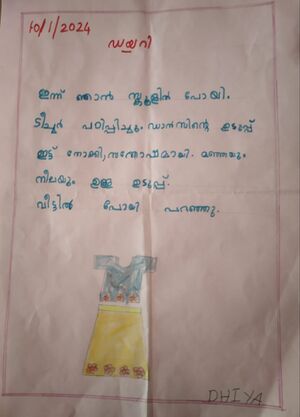 10/1/2024
ഡയറി
ഇന്ന് ഞാൻ സ്കൂളിൽ പോയി.
ടീച്ചർ പഠിപ്പിച്ചു. ഡാൻസിന്റെ ഉടുപ്പ്
ഇട്ട് നോക്കി, സന്തോഷമായി. മഞ്ഞയും.
നീലയും ഉള്ള ഉടുപ്പ്.
വീട്ടിൽ പോയി പറഞ്ഞു.
DHIYA